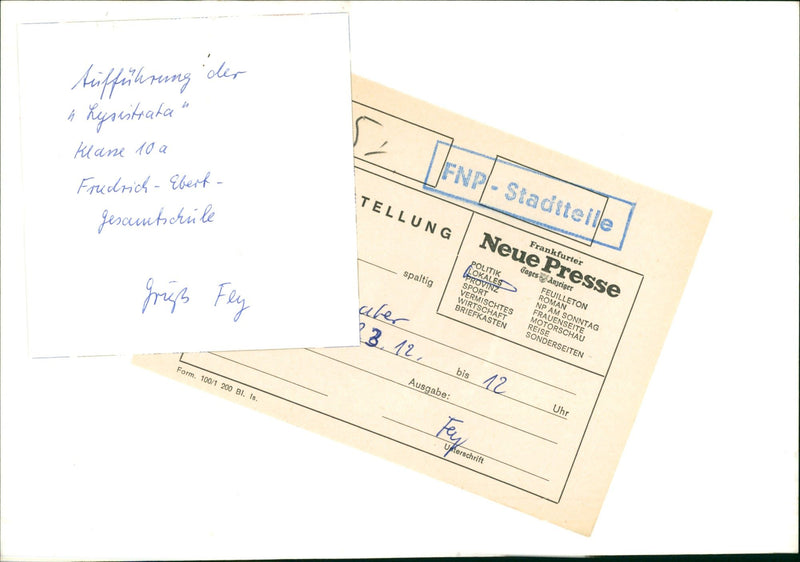 Aufführung der
"Lysistrata"
Klasse 10a
Friedrich-Ebert-
Gesamtschule
Gruß Fey
5,
FNP - Stadtteile
TELLUNG
spaltig
Frankfurter
Neue Presse
Tages Anzeiger
POLITIK
LOKALES
PROVINZ
SPORT
VERMISCHTES
WIRTSCHAFT
BRIEFKASTEN
FEUILLETON
ROMAN
NP AM SONNTAG
FRAUENSEITE
MOTORSCHAU
REISE
SONDERSEITEN
3.12. bis 12 Uhr
Ausgabe:
Fey
Unterschrift
Form. 100/1 200 Bl. ls.